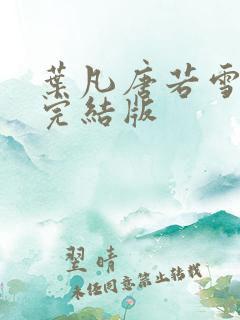 葉凡唐若雪
完結版
翌晴
未經同意禁止轉載